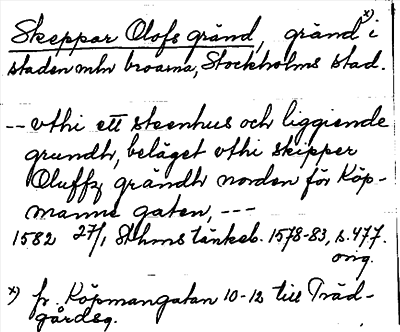 Skeppar Olofs gränd, gränd x) i
staden mln broarna, Stockholms stad.
-- vthi ett steenhus och liggiende
grundh, beläget vthi skipper
Oluffz grändh norden för Köp-
manne gaten, ---
1582 27/1 Sthoms tänkeb. 1578-83, s. 477.
orig.
x) fr. Köpmangatan 10-12 till Träd-
gårdsg.